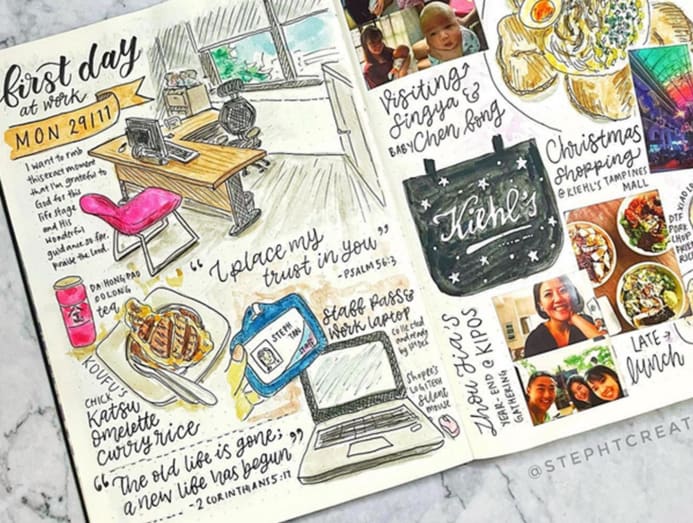 first day
at work
MON 29/11
I want to rmb
this exact moment
that I'm grateful to
God for this
life stage
and His
wonderful
guidance so far,
praise the Lord.
"I place my
trust in you"
-PSALM 56:3
DA HONG PAO
OOLONG
tea
KOUFU'S
CHICK
Katsu
Omelette
curry rice
STEPH
TAN
Staff Pass &
Work laptop
Collected
and ready
by
Shopee's
LOGITECH
Silent
mouse
"The old life is gone;
a new life has begun"
-2 CORINTHIANS 5:17
Visiting
Singya &
BABY Chen Song
Kiehl's
Christmas
shopping
@KIEHL'S TAMPINES
MALL
DTF
PORK
CHOP
FRIED
RICE
Zhou Jia's
YEAR END @ KIPOS
GATHERING
LATE
lunch
@STEPHTCREAT